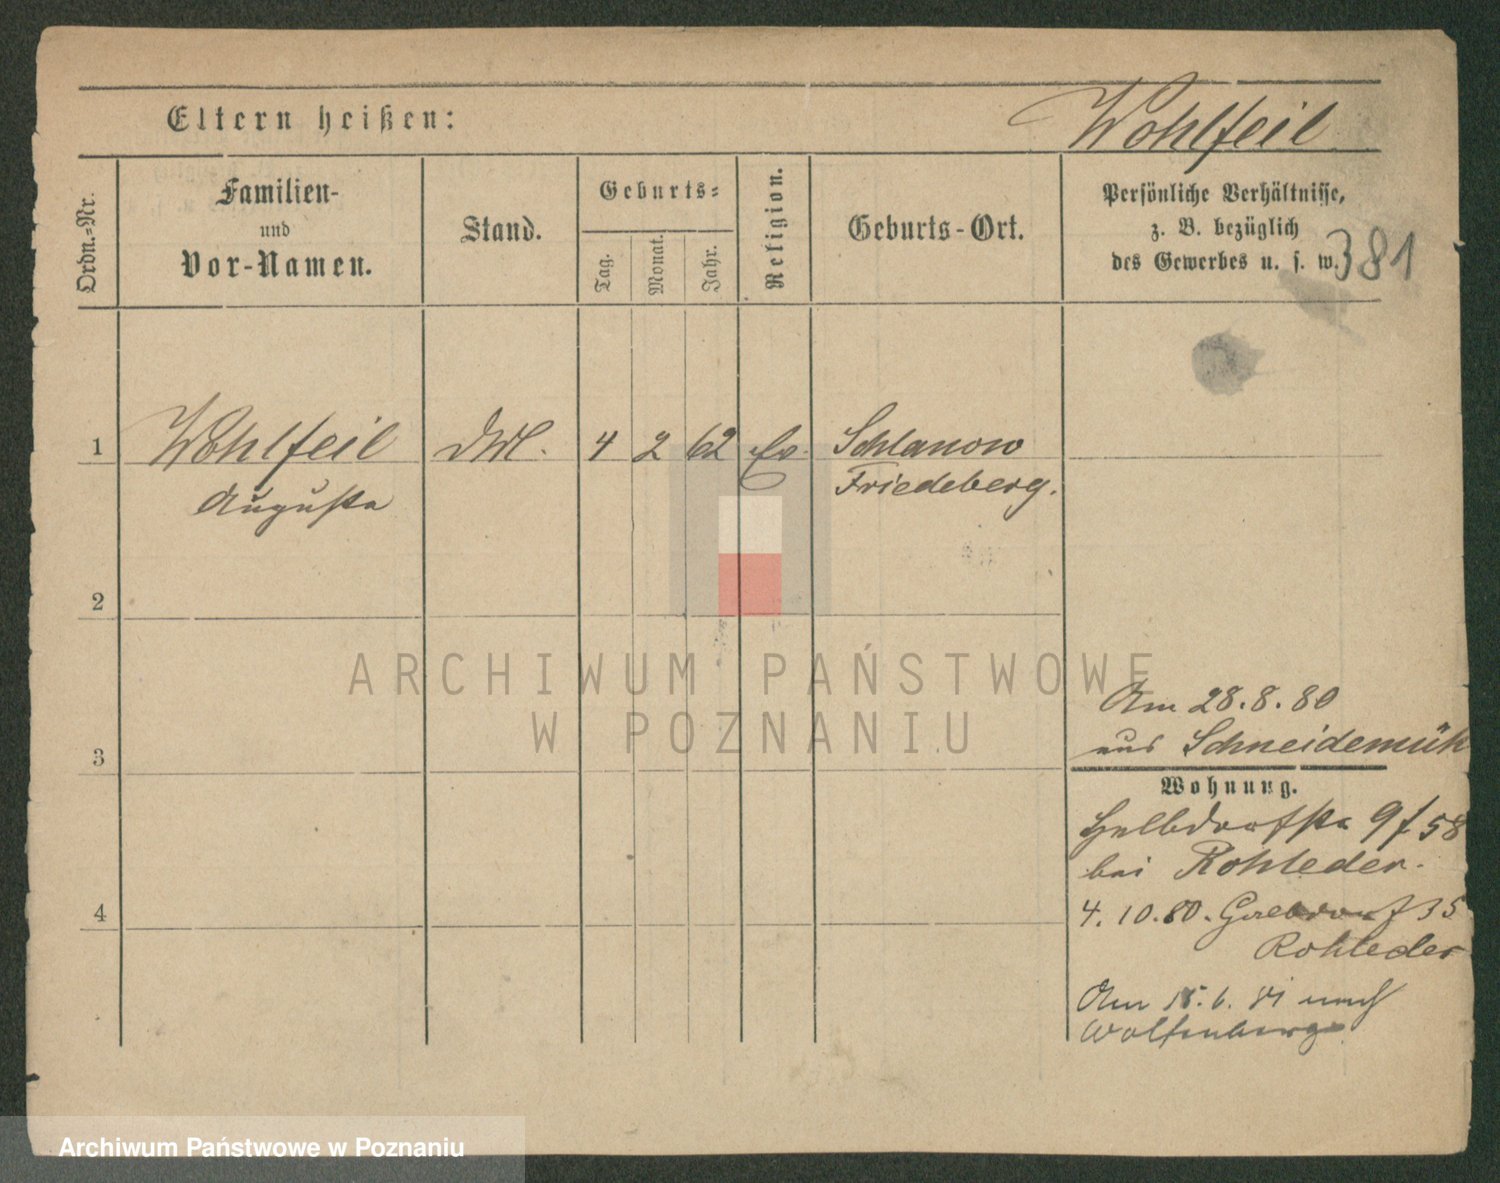 Eltern heißen:
Wohlfeil
Ordn.=Nr.
Familien-
und
Vor-Namen.
Stand.
Geburts=
Tag.
Monat.
Jahr.
Religion.
Geburts-Ort.
Persönliche Verhältnisse,
z. B. bezüglich
des Gewerbes u. s. w.
381
1 Wohlfeil 4 2 62 Ev. Schlanow
Augusta Friedeberg.
2
3
4
Am 28.8.80
aus Schneidemühl
Wohnung.
Halbdorfstr 9 f 58
bei Rohleder.
4.10.80. Halbdorf 35
Rohleder
Am 15.6.81 nach
ARCHIWUM PAŃSTWOWE
W POZNANIU
Archiwum Państwowe w Poznaniu